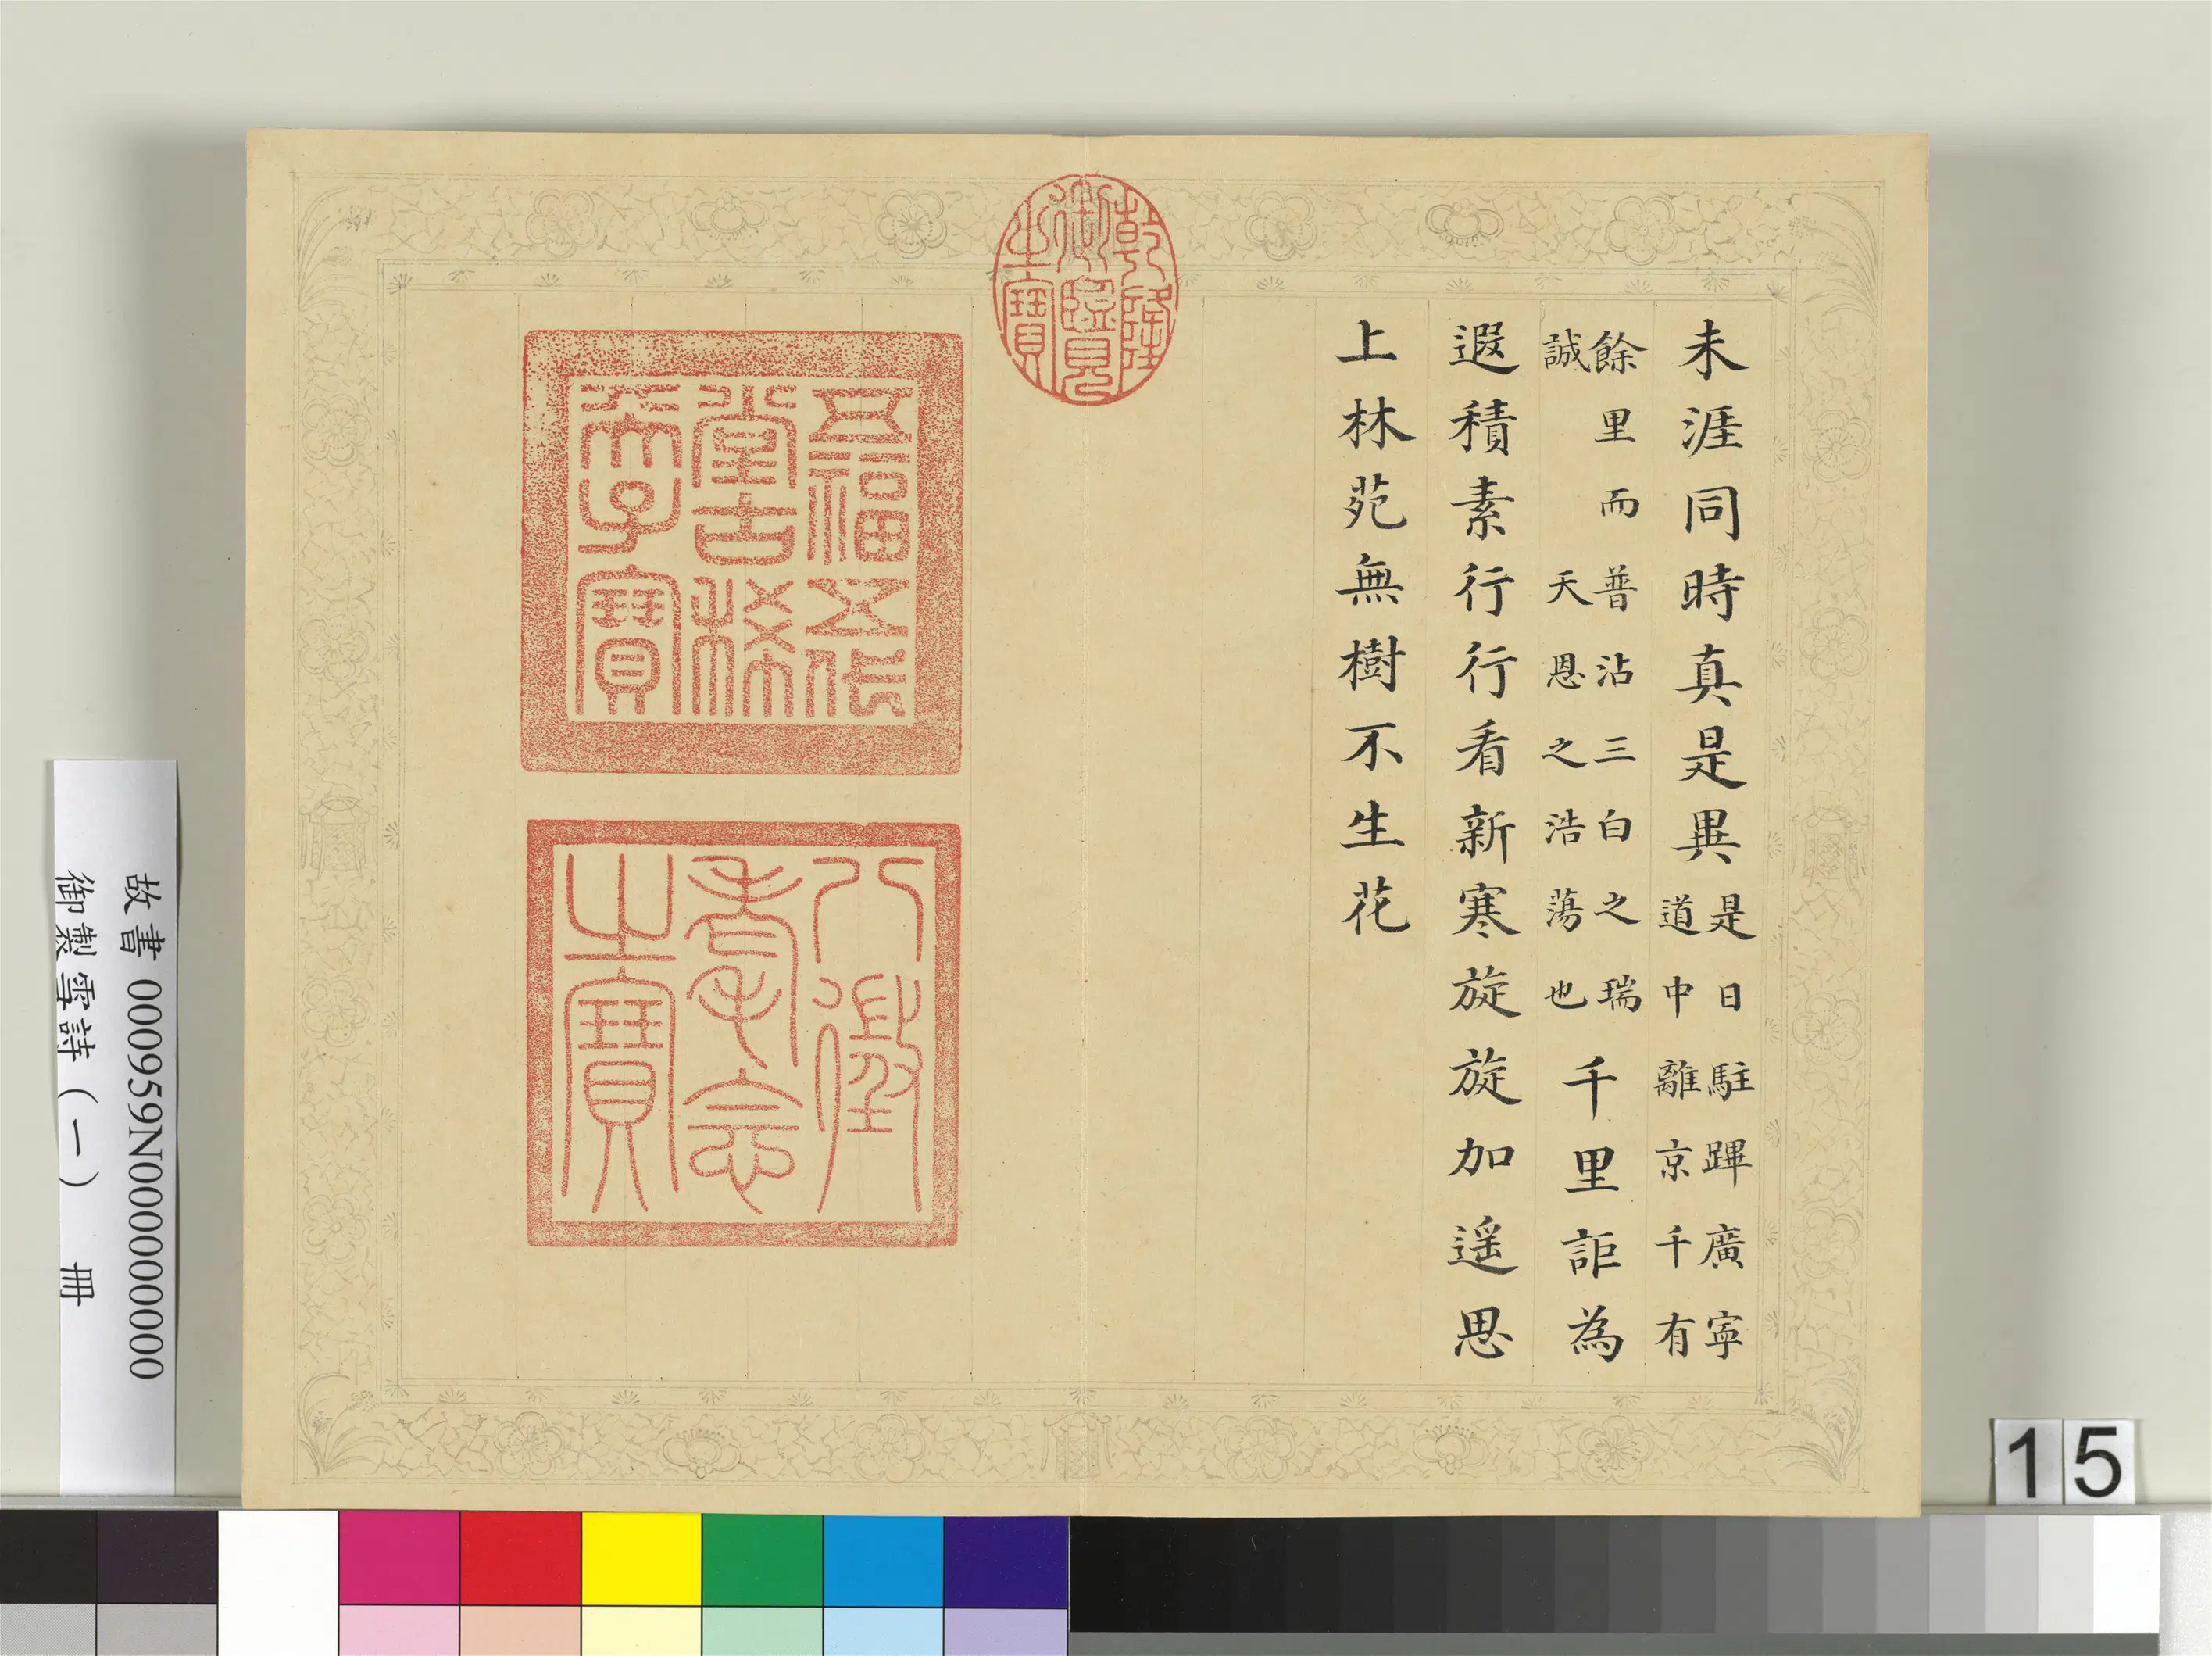 未涯同時真是異是日駐蹕廣寧
道中離京千有
餘里而普沾三白之瑞
誠天恩之浩蕩也千里詎為
遐積素行行看新寒旋旋加遥思
上林苑無樹不生花
乾隆
御覽
之寶
五福五代
堂古稀
天子寶
八徵
耄念
之寶
故書 000959N000000000
御製雪詩(一) 冊
15